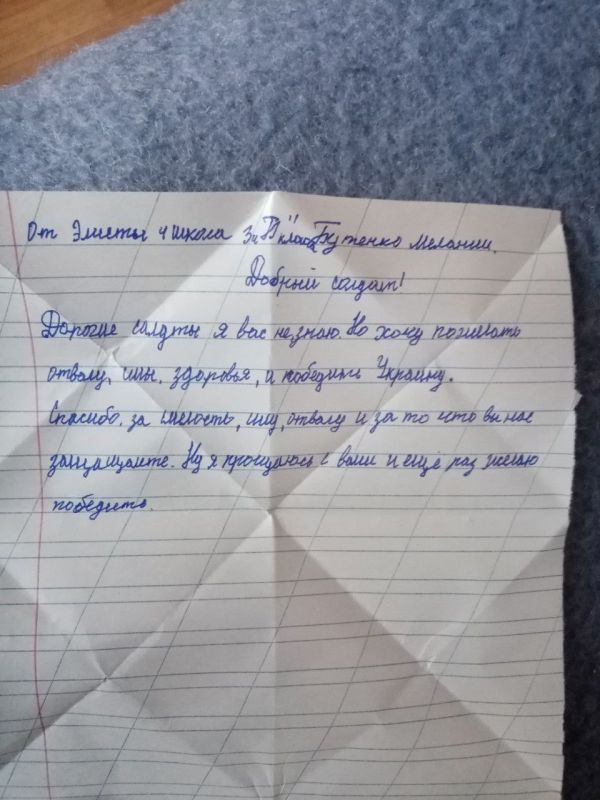 От Элисты 4 школа 3 "В" класса Бутенко Мелании.
Добрый солдат!
Дорогие салдты я вас незнаю. Но хочу пожелать
отвагу, силы, здоровья, и победить Украину.
Спасибо, за смелость, силу, отвагу и за то что вы нас
защищаите. Ну я прощаюсь с вами и ещё раз желаю
победить.